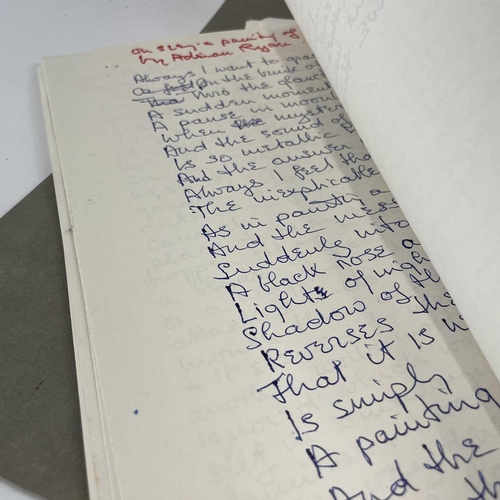 On seeing a painting of
by Adrian Ryan
Always I want to
on the brink of
into the
A sudden moment
A pause in
When the
And the sound of
Is so metallic
And the answer
Always I feel that
The inexplicable
As in painting a
And the mess
Suddenly into
A black rose
Lights of night
Shadow of
Reverses the
That it is
Is simply
A painting
And the